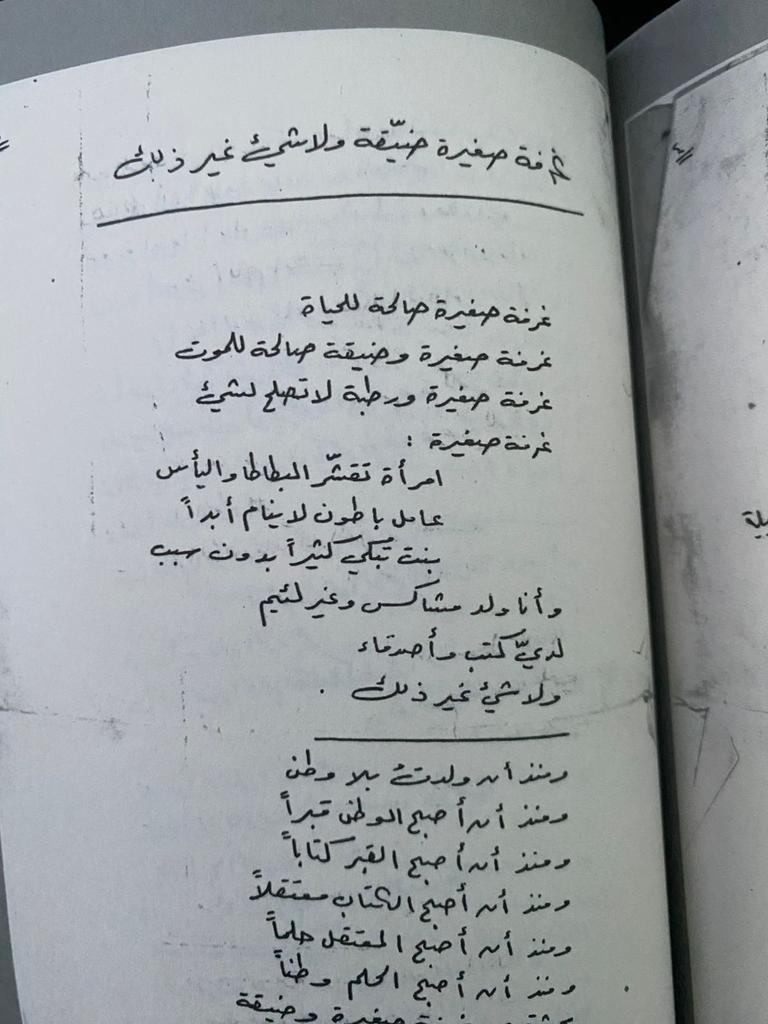 غرفة صغيرة ضيّقة ولاشيئ غير ذلك
غرفة صغيرة صالحة للحياة
غرفة صغيرة وضيقة صالحة للموت
غرفة صغيرة ورطبة لاتصلح لشيئ
غرفة صغيرة :
امرأة تقشّر البطاطا واليأس
عامل باطون لاينام أبداً
بنت تبكي كثيراً بدون سبب
وأنا ولد مشاكس وغير لئيم
لديّ كتب وأصدقاء
ولاشيئ غير ذلك .
ومنذ أن ولدتُ بلا وطن
ومنذ أن أصبح الوطن قبراً
ومنذ أن أصبح القبر كتاباً
ومنذ أن أصبح الكتاب معتقلاً
ومنذ أن أصبح المعتقل حلماً
ومنذ أن أصبح الحلم وطناً
غرفة صغيرة وضيقة